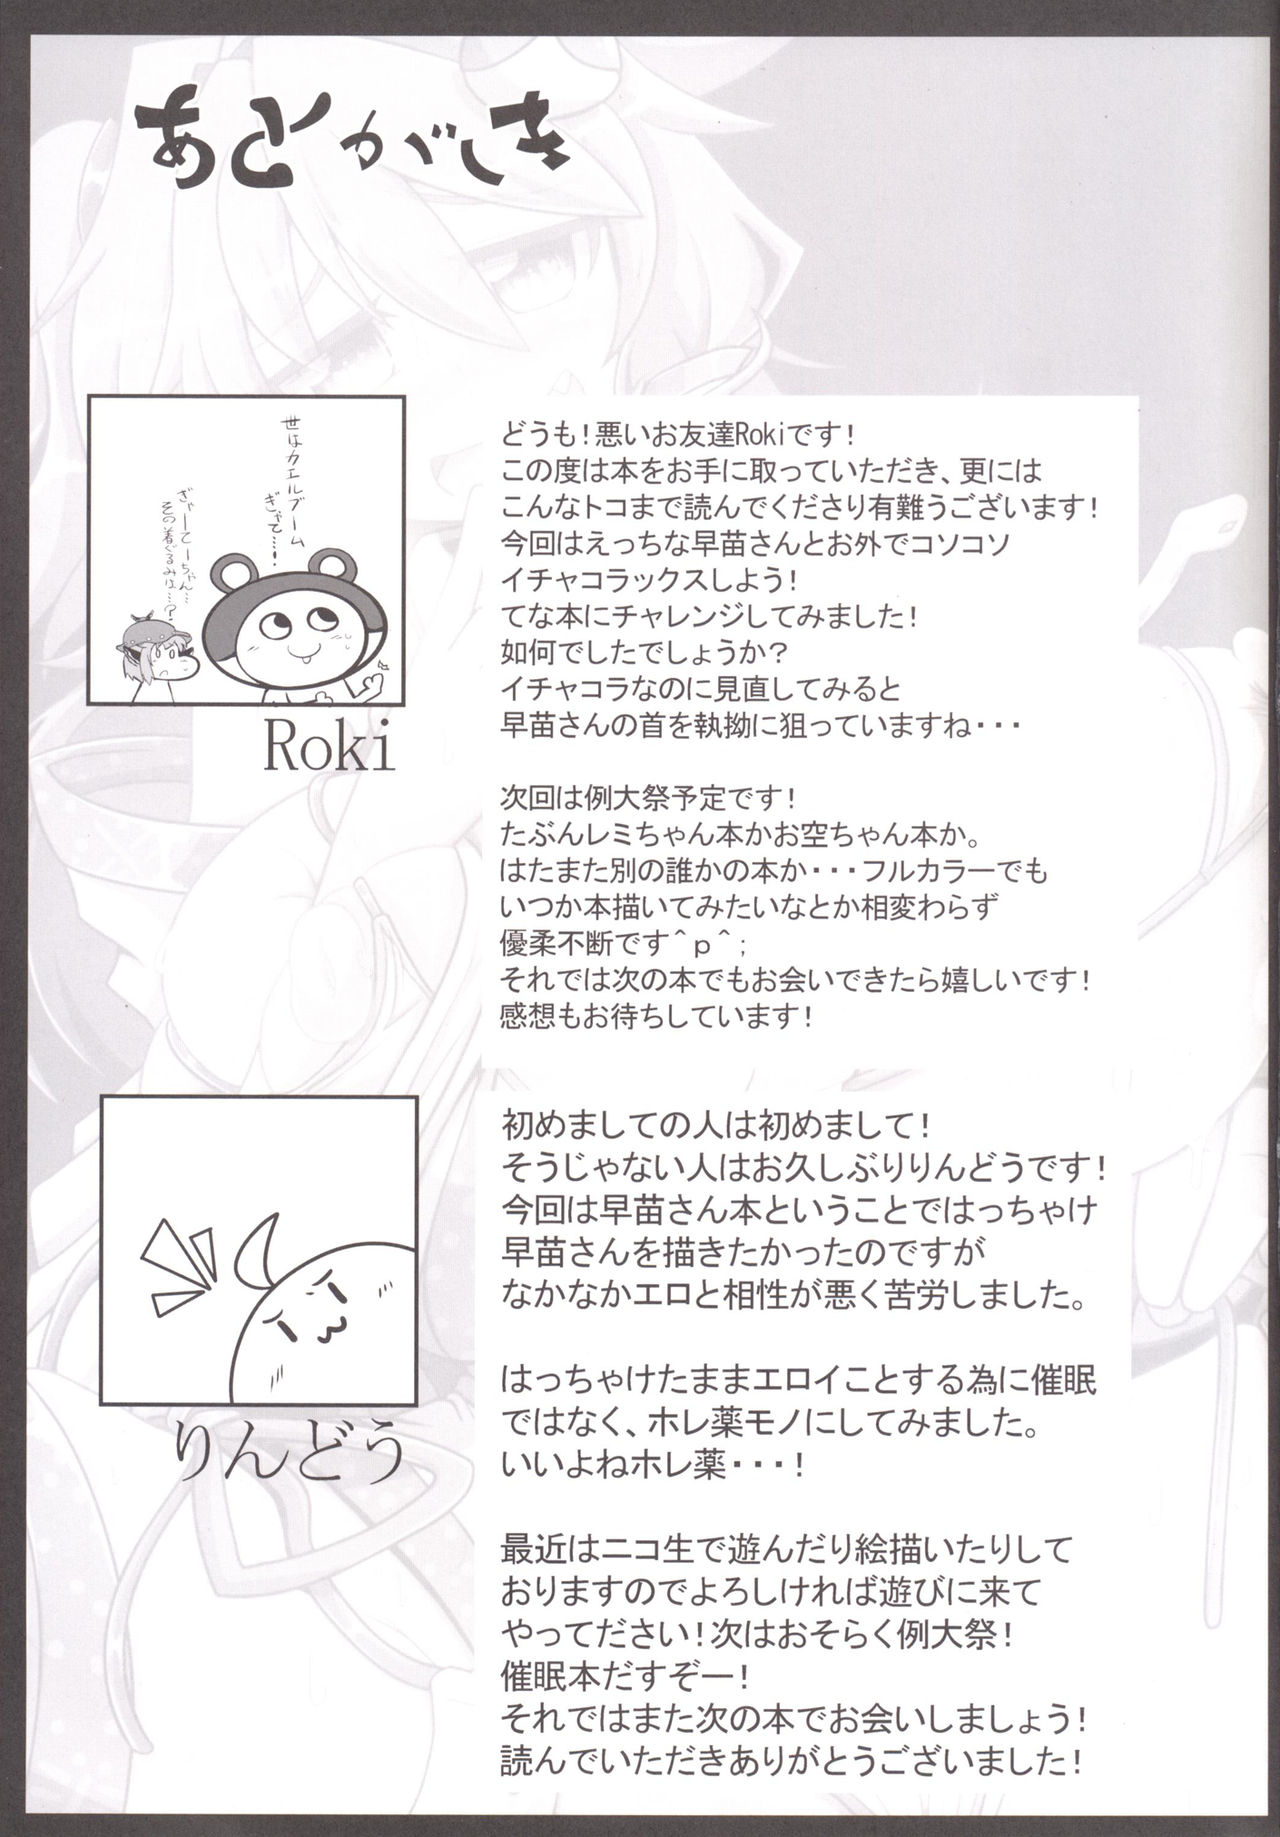 あとがき
世はカエルブーム
ぎゃて…！
ぎゃーてーちゃん…
その着ぐるみは…？
Roki
どうも！悪いお友達Rokiです！
この度は本をお手に取っていただき、更には
こんなトコまで読んでくださり有難うございます！
今回はえっちな早苗さんとお外でコソコソ
イチャコラックスしよう！
てな本にチャレンジしてみました！
如何でしたでしょうか？
イチャコラなのに見直してみると
早苗さんの首を執拗に狙っていますね・・・
次回は例大祭予定です！
たぶんレミちゃん本かお空ちゃん本か。
はたまた別の誰かの本か・・・フルカラーでも
いつか本描いてみたいなとか相変わらず
優柔不断です＾ｐ＾；
それでは次の本でもお会いできたら嬉しいです！
感想もお待ちしています！
りんどう
初めましての人は初めまして！
そうじゃない人はお久しぶりりんどうです！
今回は早苗さん本ということではっちゃけ
早苗さんを描きたかったのですが
なかなかエロと相性が悪く苦労しました。
はっちゃけたままエロイことする為に催眠
ではなく、ホレ薬モノにしてみました。
いいよねホレ薬・・・！
最近はニコ生で遊んだり絵描いたりして
おりますのでよろしければ遊びに来て
やってださい！次はおそらく例大祭！
催眠本だすぞー！
それではまた次の本でお会いしましょう！
読んでいただきありがとうございました！